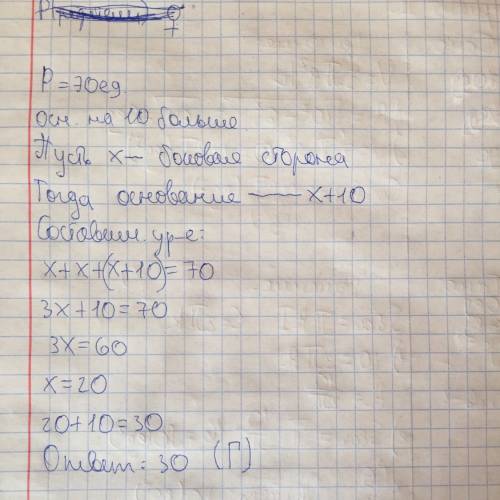 P=70ед.
осн. на 10 больше.
Пусть x — боковая сторона
Тогда основание — x+10
Составим ур-е:
x+x+(x+10)=70
3x+10=70
3x=60
x=20
20+10=30
Ответ: 30 (П)